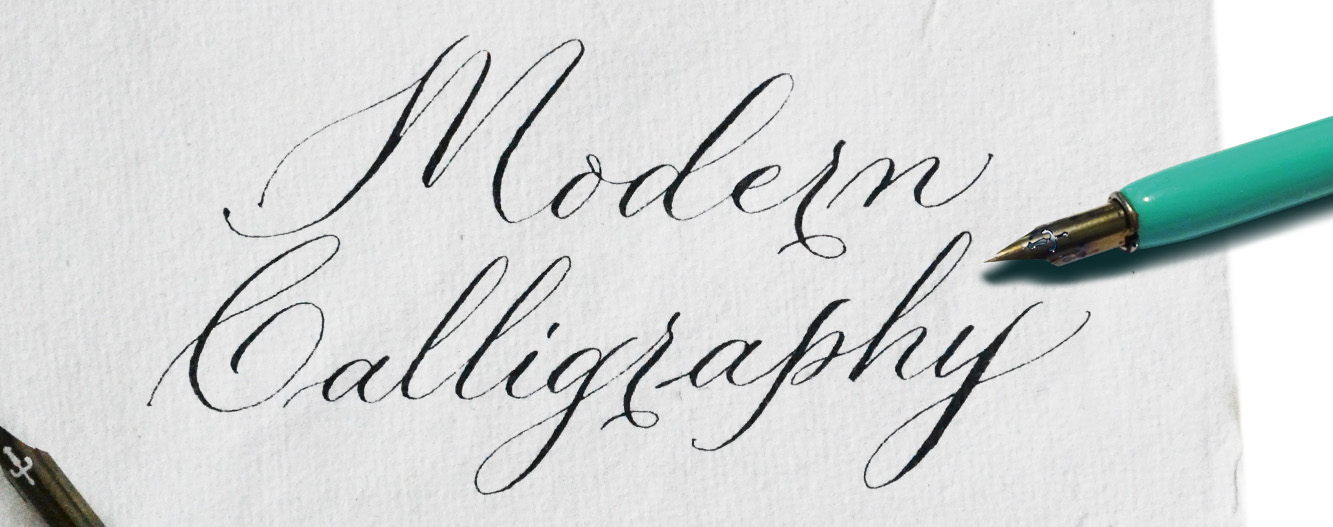 Modern
Calligraphy